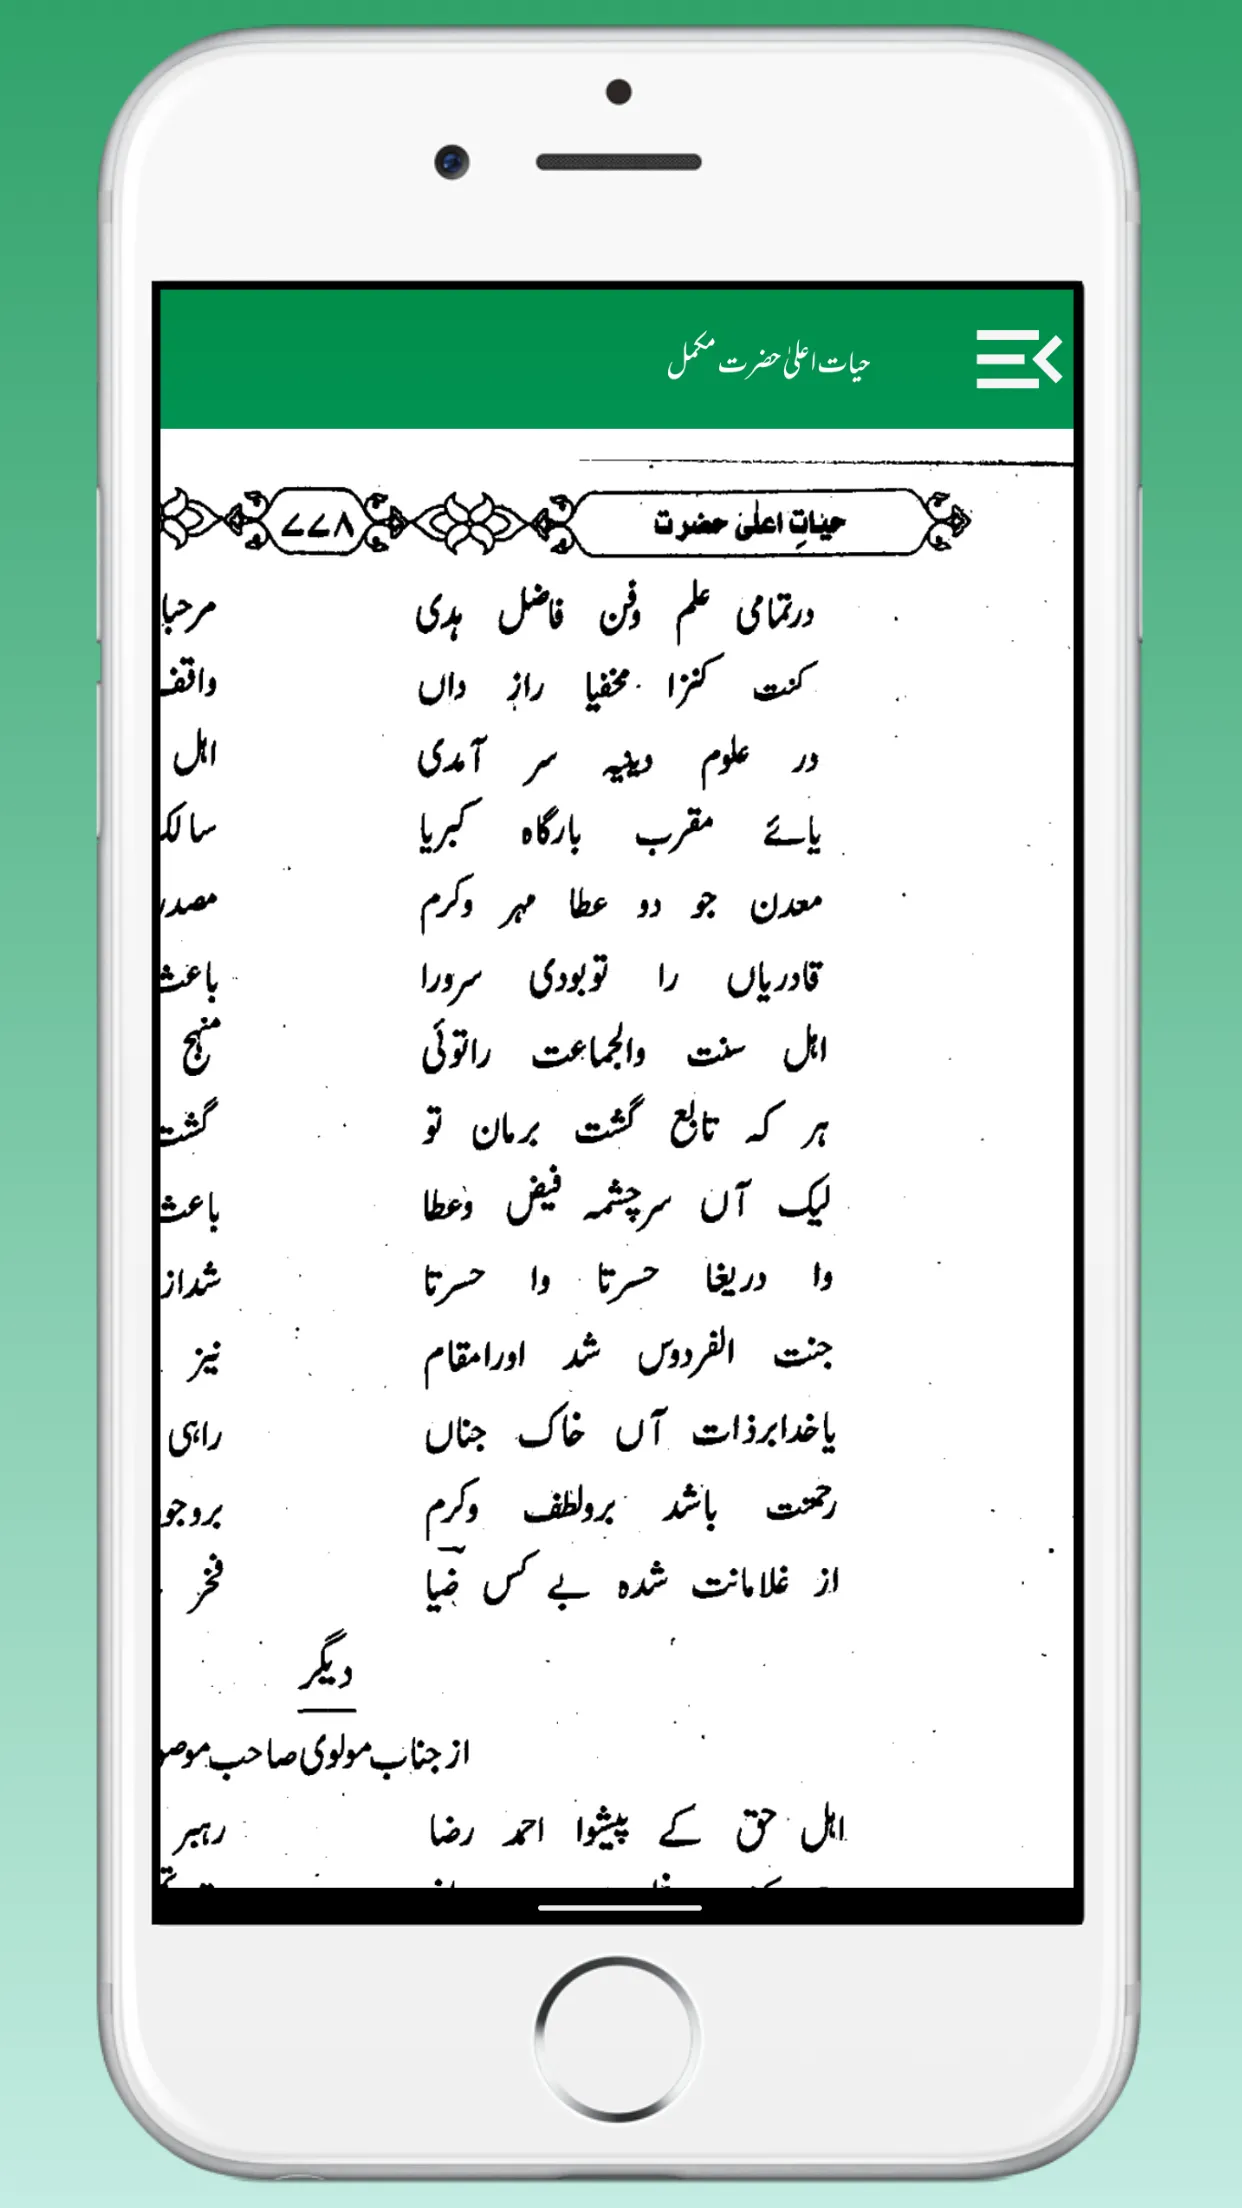 حیات اعلیٰ حضرت مکمل
حیاتِ اعلیٰ حضرت ۷۷۸
درتمامی علم وفن فاضل بدی مرحبا
کنت کنزا مخفیا راز داں واقف
در علوم دینیہ سر آمدی اہل
یائے مقرب بارگاہ کبریا سالک
معدن جو دو عطا مہر وکرم مصدر
قادریاں را توبودی سرورا باعث
اہل سنت والجماعت راتوئی منہج
ہر کہ تابع گشت برمان تو گشت
لیک آں سرچشمہ فیض وعطا باعث
وا دریغا حسرتا وا حسرتا شداز
جنت الفردوس شد اورامقام نیز
یاخدابرذات آں خاک جناں راہی
رحمتت باشد برولطف وکرم بروجو
از غلامانت شدہ بے کس ضیا فخر
دیگر
از جناب مولوی صاحب موصو
اہل حق کے پیشوا احمد رضا رہبر